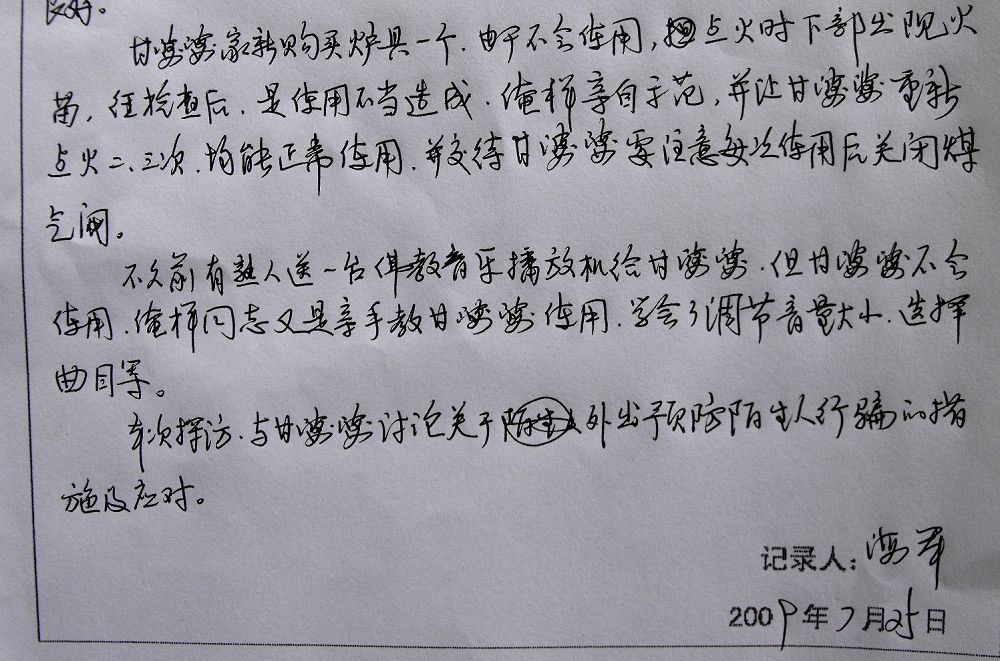 良好。
甘婆婆家新购买炉具一个.由于不会使用,点火时下部出现火
苗,经检查后.是使用不当造成.俺样亲自示范,并让甘婆婆重新
点火二、三次.均能正常使用.并交待甘婆婆要注意每次使用后关闭煤
气阀。
不久前有熟人送一台佛教音乐播放机给甘婆婆.但甘婆婆不会
使用.俺样同志又是亲手教甘婆婆使用.学会了调节音量大小.选择
曲目等。
本次探访.与甘婆婆讨论关于陌生人外出预防陌生人行骗的措
施及应对。
记录人:海军
2009年7月25日